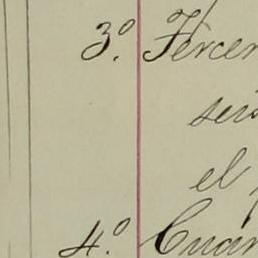 3.º Tercer
seis
el
4.º Cuar